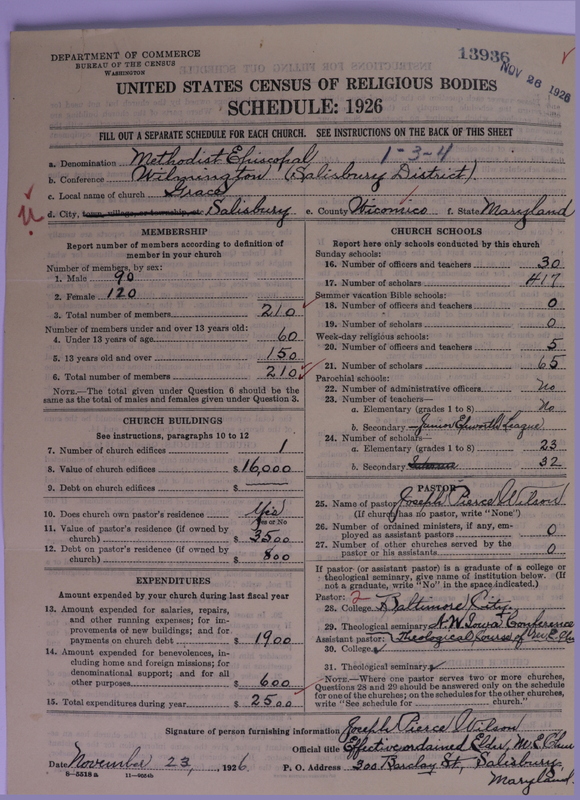 DEPARTMENT OF COMMERCE
BUREAU OF THE CENSUS
WASHINGTON
13936
NOV 26 1926
UNITED STATES CENSUS OF RELIGIOUS BODIES
SCHEDULE: 1926
FILL OUT A SEPARATE SCHEDULE FOR EACH CHURCH. SEE INSTRUCTIONS ON THE BACK OF THIS SHEET
a. Denomination Methodist Episcopal 1-3-4
b. Conference Wilmington (Salisbury District)
c. Local name of church Grace
d. City, town, village, or township, of Salisbury e. County Wicomico f. State Maryland
MEMBERSHIP
Report number of members according to definition of
member in your church
Number of members, by sex:
1. Male 90
2. Female 120
3. Total number of members 210
Number of members under and over 13 years old:
4. Under 13 years of age 60
5. 13 years old and over 150
6. Total number of members 210
NOTE.—The total given under Question 6 should be the
same as the total of males and females given under Question 3.
CHURCH BUILDINGS
See instructions, paragraphs 10 to 12
7. Number of church edifices 1
8. Value of church edifices $16,000
9. Debt on church edifices $
10. Does church own pastor's residence Yes
Yes or No
11. Value of pastor's residence (if owned by
church) $3500
12. Debt on pastor's residence (if owned by
church) $800
EXPENDITURES
Amount expended by your church during last fiscal year
13. Amount expended for salaries, repairs,
and other running expenses; for im-
provements of new buildings; and for
payments on church debt $1900
14. Amount expended for benevolences, in-
cluding home and foreign missions; for
denominational support; and for all
other purposes $600
15. Total expenditures during year $2500
CHURCH SCHOOLS
Report here only schools conducted by this church
Sunday schools:
16. Number of officers and teachers 30
17. Number of scholars 417
Summer vacation Bible schools:
18. Number of officers and teachers 0
19. Number of scholars 0
Week-day religious schools:
20. Number of officers and teachers 5
21. Number of scholars 65
Parochial schools:
22. Number of administrative officers No
23. Number of teachers—
a. Elementary (grades 1 to 8) No
b. Secondary Junior Epworth League
24. Number of scholars—
a. Elementary (grades 1 to 8) 23
b. Secondary 32
PASTOR
25. Name of pastor Joseph Pierce Wilson
(If church has no pastor, write "None")
26. Number of ordained ministers, if any, em-
ployed as assistant pastors 0
27. Number of other churches served by the
pastor or his assistants 0
If pastor (or assistant pastor) is a graduate of a college or
theological seminary, give name of institution below. (If
not a graduate, write "No" in the space indicated.)
Pastor: 2
28. College Baltimore City
29. Theological seminary N.W. Iowa Conference
Assistant pastor: Theological course of M.E. Ch
30. College
31. Theological seminary
NOTE.—Where one pastor serves two or more churches,
Questions 28 and 29 should be answered only on the schedule
for one of the churches; on the schedules for the other churches,
write "See schedule for church."
Signature of person furnishing information Joseph Pierce Wilson
Official title Effective ordained Elder, M.E. Chur
Date November 23, 1926 P. O. Address 300 Barclay St., Salisbury,
8-5518 a Maryland.